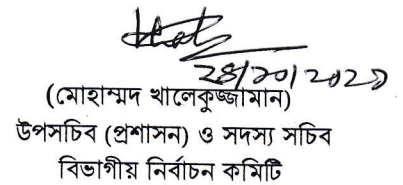 (মোহাম্মদ খালেকুজ্জামান)
উপসচিব (প্রশাসন) ও সদস্য সচিব
বিভাগীয় নির্বাচন কমিটি